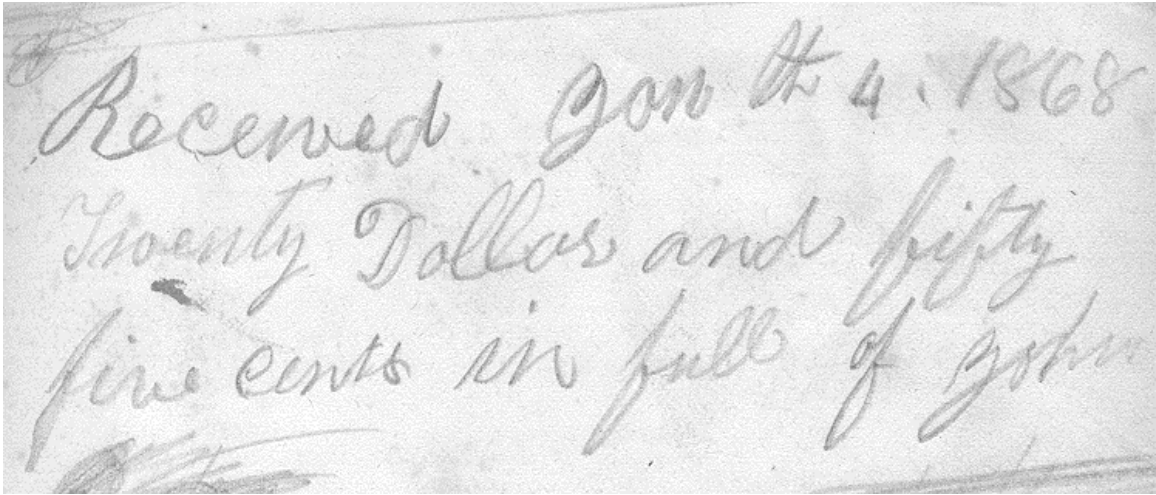 Received Jan th 4. 1868
Twenty Dollar and fifty
five cents in full of John